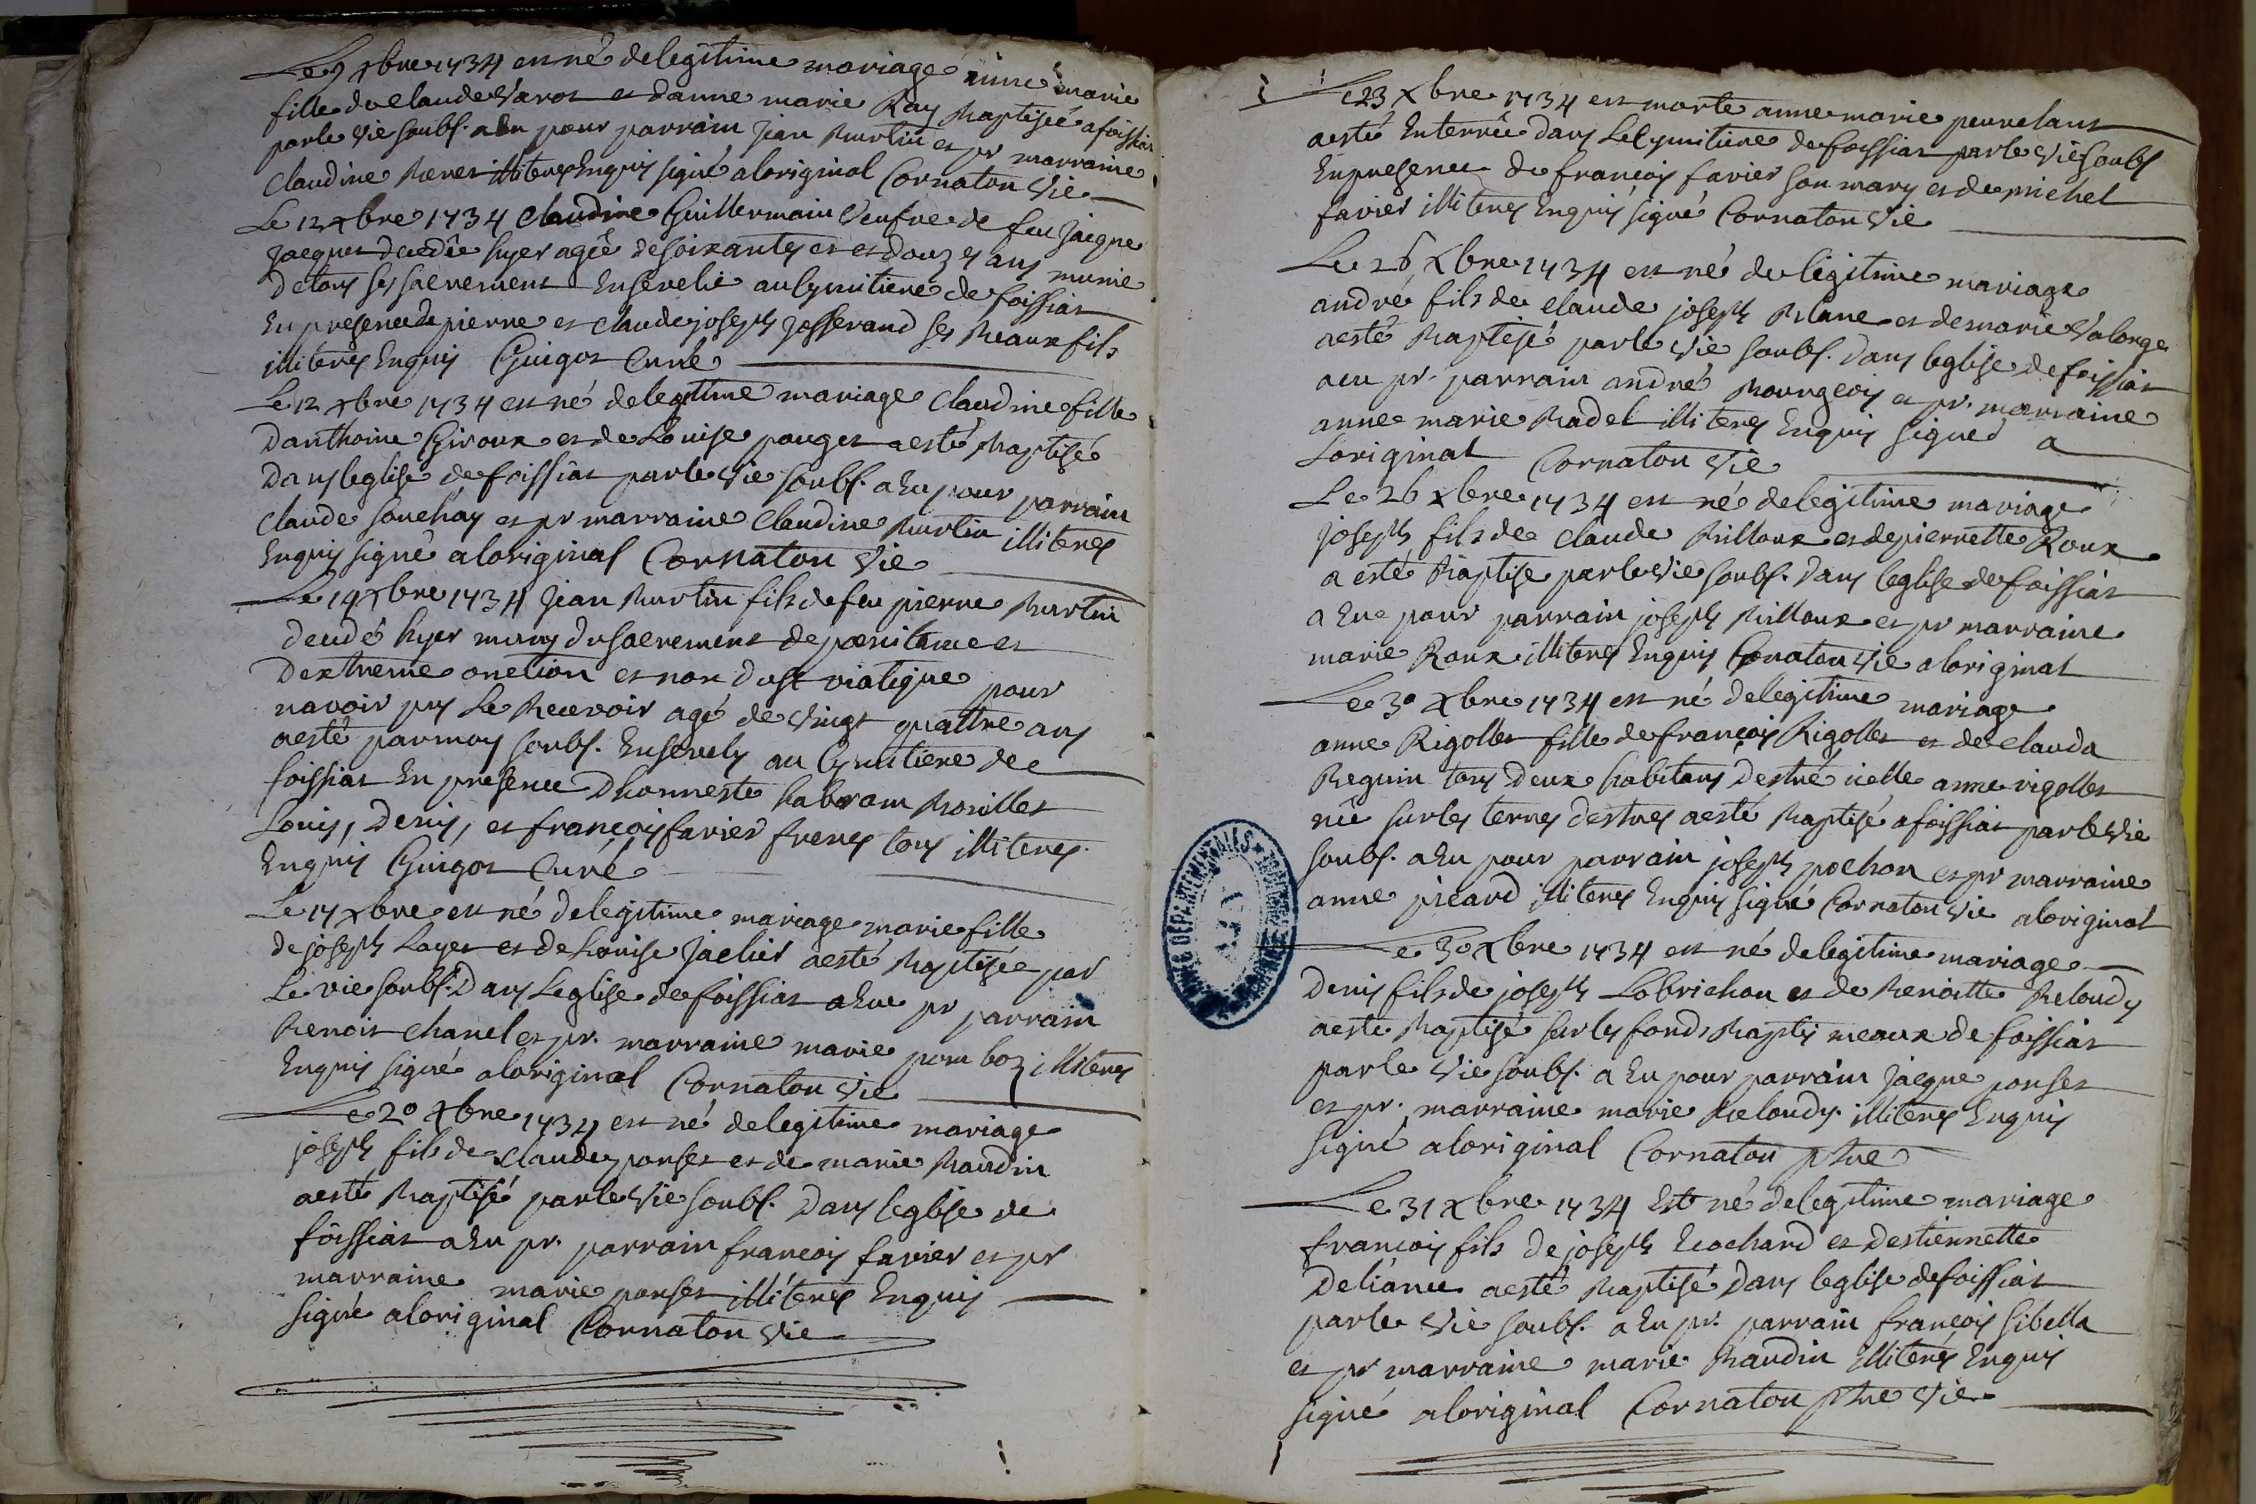 Le 9 xbre 1734 est né de legitime mariage anne marie
fille de claude Varot et danne marie Ray Baptisée a foissiat
par le vic soubs. a Eu pour parrain Jean Burtin et pr marraine
Claudine illiterés Enquis signé a loriginal Cornaton vic
Le 12 xbre 1734 Claudine Guillermain veufve de feu Jacque
Jacquet decedée hyer agée de soixantes et et douzes ans munie
de tous ses sacrement Ensevelie au Cymitiere de foissiat
En presence de pierre et claude joseph Josserand ses Beaux fils
illiterés Enquis Guigot Curé
Le 12 xbre 1734 est né de legitime mariage Claudine fille
Danthoine Giroux et de Louise pauget a esté Baptisé
Dans leglise de foissiat par le vic soubs. a Eu pour parrain
Claude souchay et pr marraine Claudine Burtin illiterés
Enquis signé a loriginal Cornaton vic
Le 14 xbre 1734 Jean Burtin fils de feu pierre Burtin
decedé hyer muny du sacrement de pœnitence et
Dextreme onction et non du st viatique pour
navoir pus Le Recevoir agé de vingt quattre ans
a esté par moy soubs. Ensevely au Cymitiere de
foissiat En presence Dhonneste Rabvam Borillet
Louis, Denis, et françois favier freres tous illiterés
Enquis Guigot Curé
Le 17 xbre est né de legitime mariage marie fille
de joseph Layet et de Louise Jaclier a esté Baptisée par
Le vic soubs. Dans Leglise de foissiat a Eue pr parrain
Benoit chanel et pr. marraine marie pomboz illiterés
Enquis signé a loriginal Cornaton vic
Le 20 xbre 1734 est né de legitime mariage
joseph fils de Claude ponset et de marie Baudin
a esté Baptisé par le vic soubs. Dans leglise de
foissiat a Eu pr. parrain francois favier et pr
marraine marie ponset illiterés Enquis
signé a loriginal Cornaton vic
Le 23 xbre 1734 est morte anne marie peuvelant
a esté Enterrée dans Le Cymitiere de foissiat par le vic soubs
En presence de françois favier son mary et de michel
favier illiterés Enquis signé Cornaton vic
Le 26 xbre 1734 est né de legitime mariage
andré fils de claude joseph Blanc et de marie Valonge
a esté Baptisé par le vic soubs. Dans leglise de foissiat
a eu pr. parrain andré Bourgeois et pr. marraine
anne marie Badel illiterés Enquis signed a
Loriginal Cornaton vic
Le 26 xbre 1734 est né de legitime mariage
joseph fils de claude Billoux et de pierrette Roux
a esté Baptise par le vic soubs. Dans leglise de foissiat
a Eue pour parrain joseph Billoux et pr marraine
marie Roux illiterés Enquis Cornaton vic a loriginal
Le 30 xbre 1734 est né de legitime mariage
anne Rigollet fille de françois Rigollet et de clauda
Reguin tous deux habitans Destré icelle anne rigollet
née sur les terres destrés a esté Baptisé a foissiat par le vic
soubs. a Eu pour parrain joseph pochon et pr marraine
anne picard illiterés Enquis signé Cornaton vic a loriginal
Le 30 xbre 1734 est né de legitime mariage
Denis fils de joseph Lobrichon et de Benoitte Beloudy
a esté Baptisé sur les fonds Baptismeaux de foissiat
par le vic soubs. a Eu pour parrain Jacque ponset
et pr. marraine marie Beloudy illiterés Enquis
signé a loriginal Cornaton ptre
Le 31 xbre 1734 Est né de legitime mariage
francois fils de joseph Ecochard et destiennette
Deliance a esté Baptisé Dans leglise de foissiat
par le vic soubs. a Eu pr. parrain francois sibella
et pr marraine marie Baudin illiterés Enquis
signé a loriginal Cornaton ptre vic